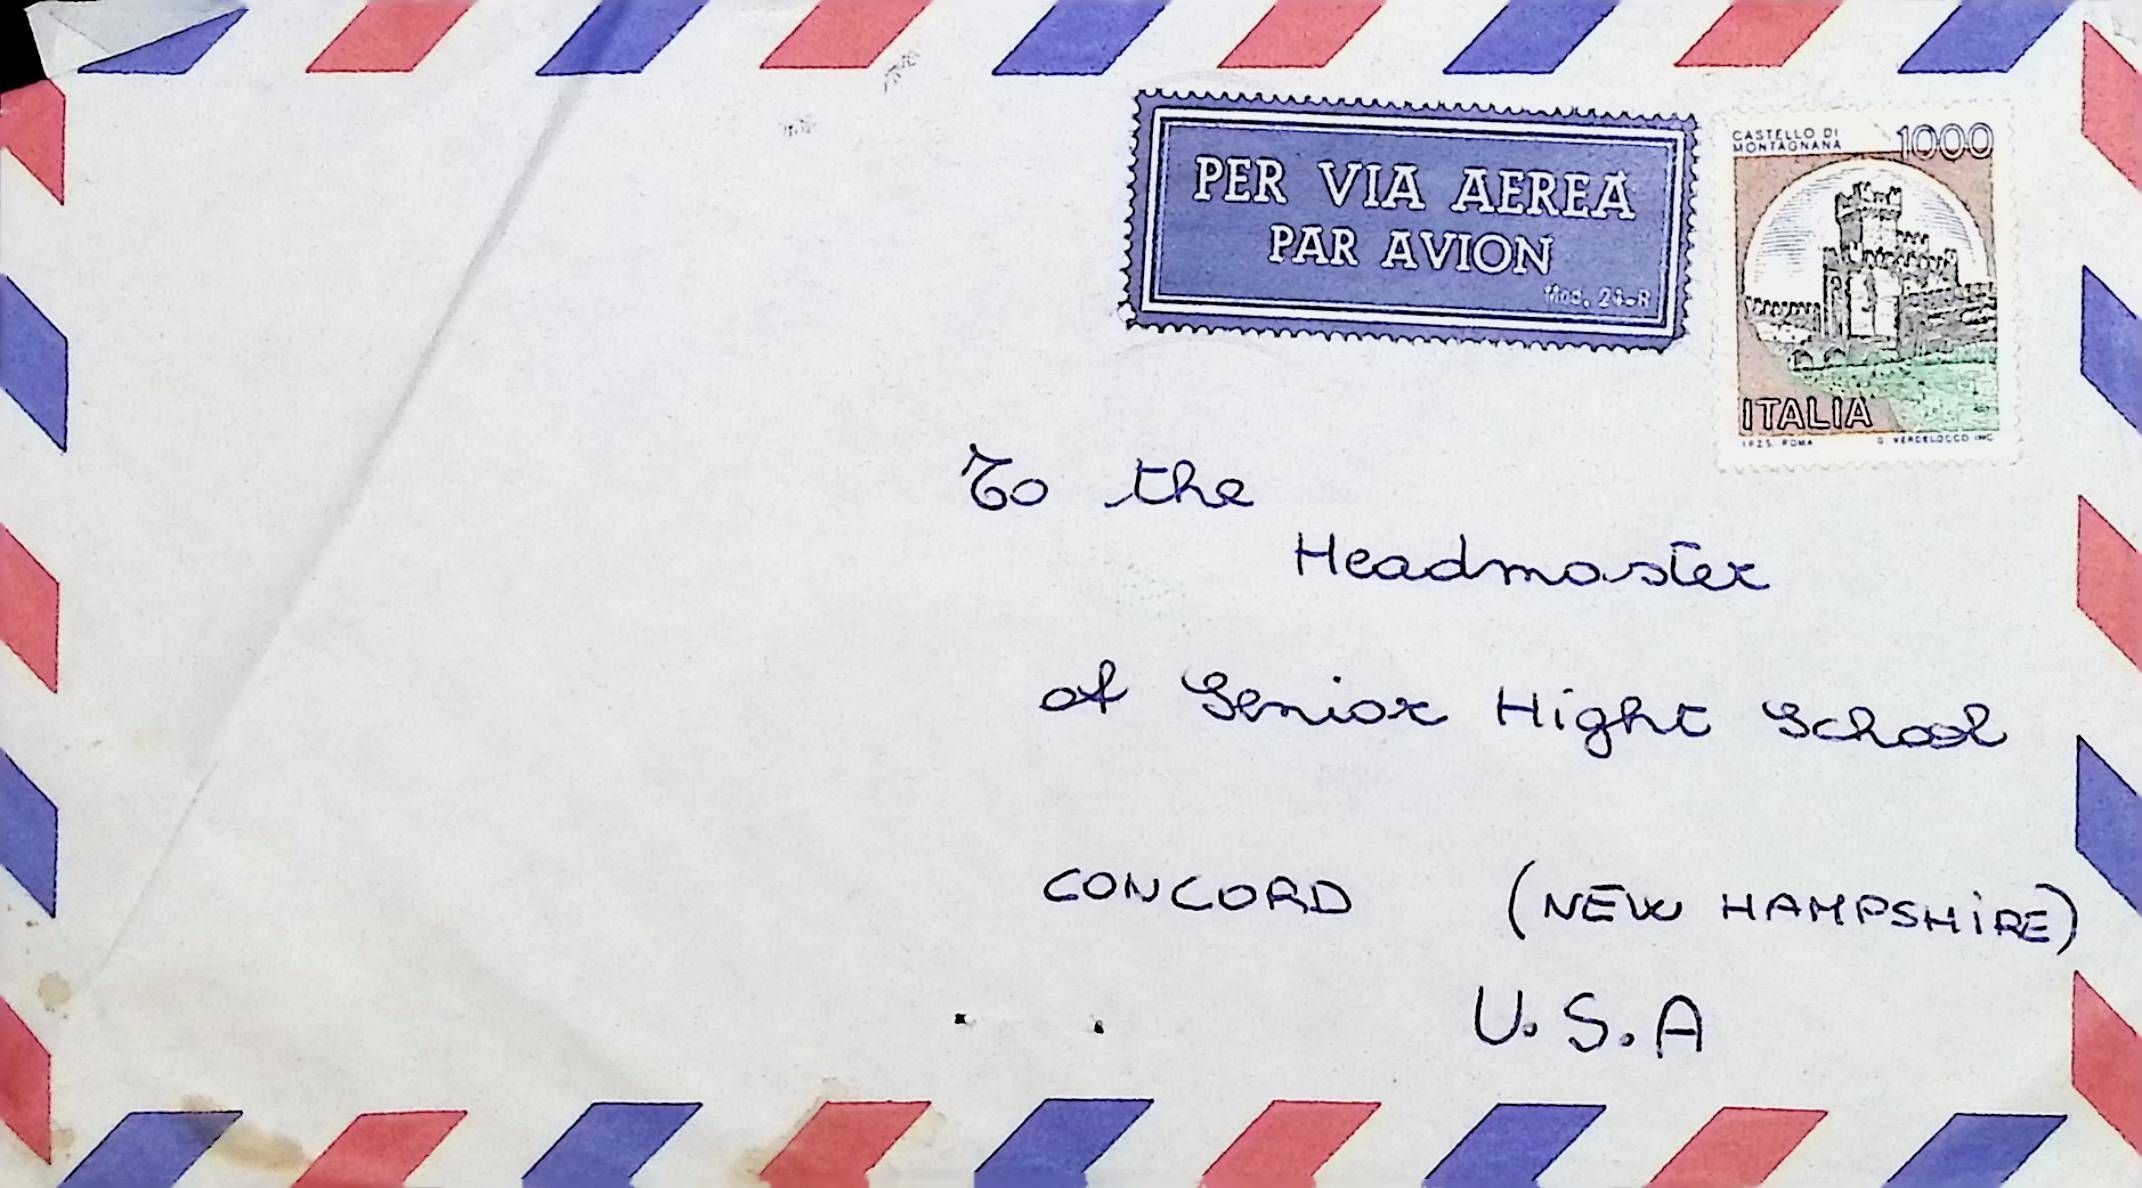 PER VIA AEREA
PAR AVION
Mod. 24-R
CASTELLO DI
MONTAGNANA
1000
ITALIA
I.P.Z.S. ROMA
To the
Headmaster
of Senior Hight School
CONCORD (NEW HAMPSHIRE)
U.S.A